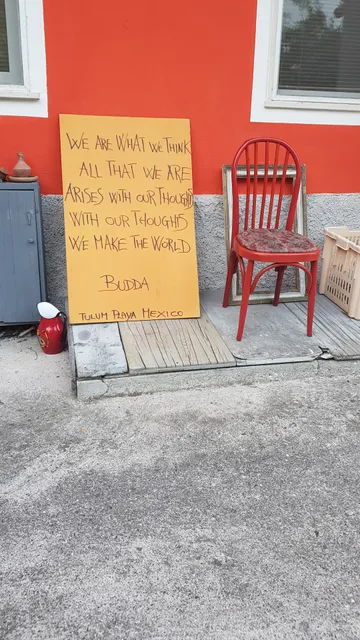 WE ARE WHAT WE THINK
ALL THAT WE ARE
ARISES WITH OUR THOUGHTS
WITH OUR THOUGHTS
WE MAKE THE WORLD
BUDDA
TULUM PLAYA MEXICO